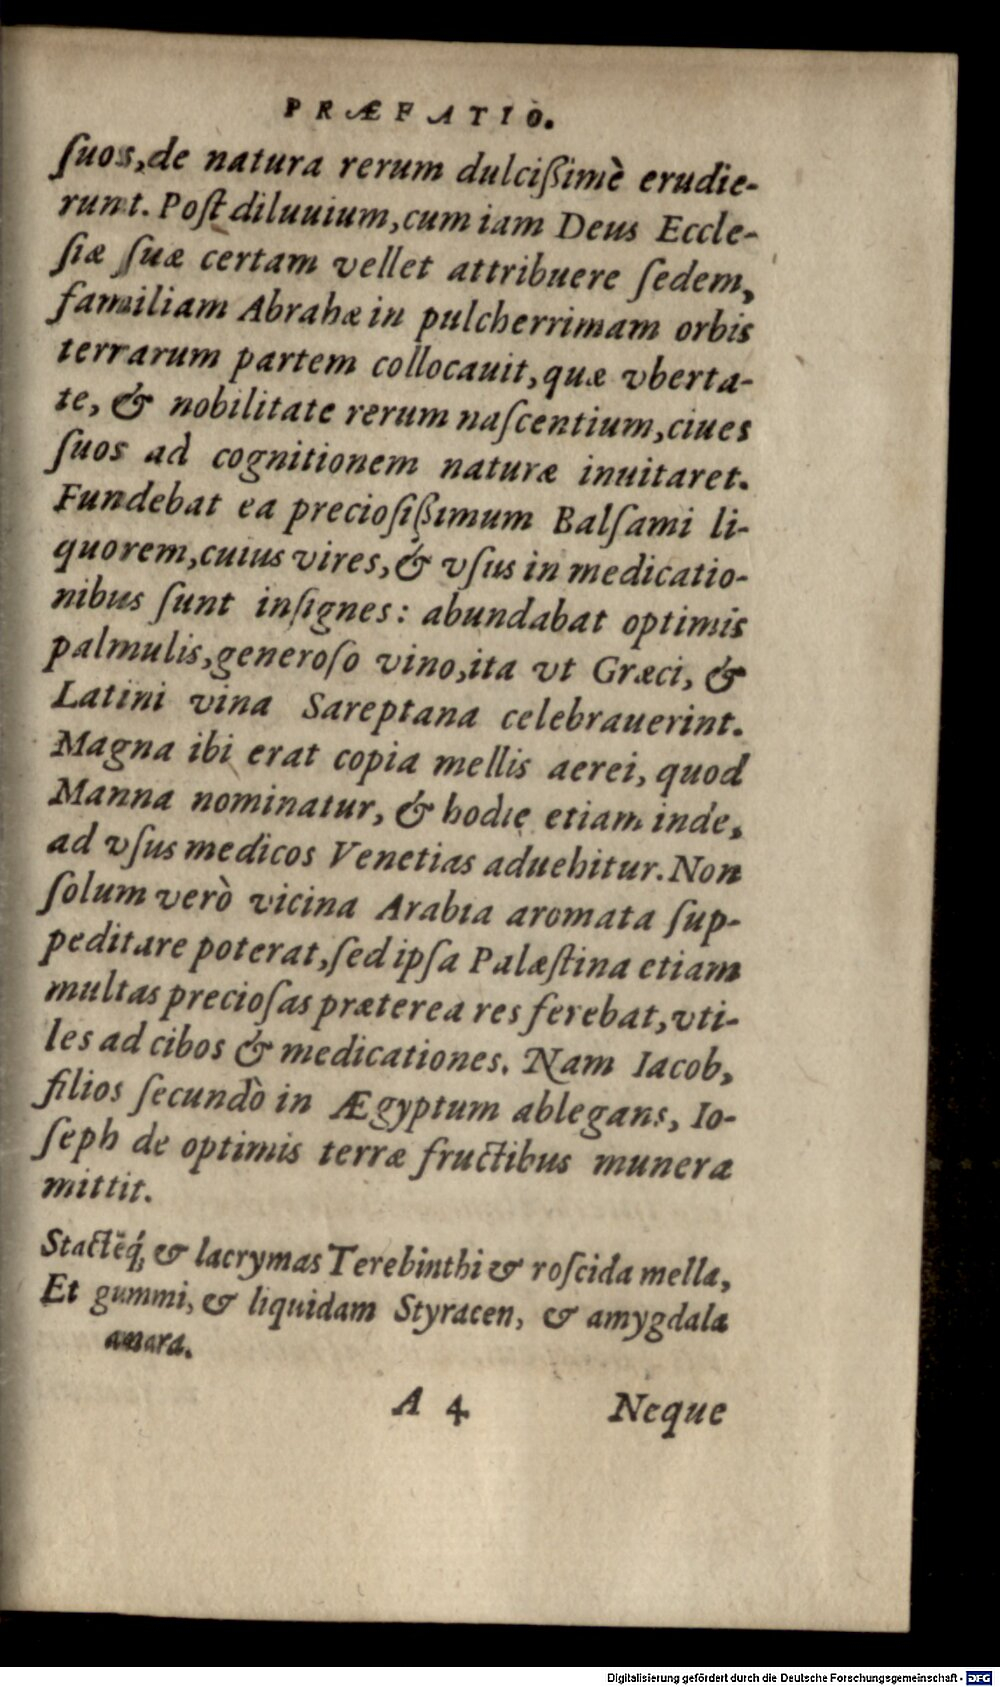 PRÆFATIO.
ſuos, de natura rerum dulcißimè erudie-
runt. Poſt diluuium, cum iam Deus Eccle-
ſiæ ſuæ certam vellet attribuere ſedem,
familiam Abrahæ in pulcherrimam orbis
terrarum partem collocauit, quæ vberta-
te, & nobilitate rerum naſcentium, ciues
ſuos ad cognitionem naturæ inuitaret.
Fundebat ea precioſißimum Balſami li-
quorem, cuius vires, & vſus in medicatio-
nibus ſunt inſignes: abundabat optimis
palmulis, generoſo vino, ita vt Græci, &
Latini vina Sareptana celebrauerint.
Magna ibi erat copia mellis aerei, quod
Manna nominatur, & hodie etiam inde,
ad vſus medicos Venetias aduehitur. Non
ſolum verò vicina Arabia aromata ſup-
peditare poterat, ſed ipſa Palæſtina etiam
multas precioſas præterea res ferebat, vti-
les ad cibos & medicationes. Nam Iacob,
filios ſecundò in Ægyptum ablegans, Io-
ſeph de optimis terræ fructibus munera
mittit.
Stactēq́; & lacrymas Terebinthi & roſcida mella,
Et gummi, & liquidam Styracen, & amygdala
amara.
A 4 Neque
Digitalisierung gefördert durch die Deutsche Forschungsgemeinschaft - DFG